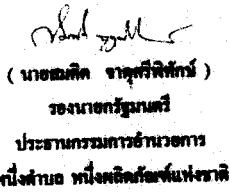 ( นายสมคิด จาตุศรีพิทักษ์ )
รองนายกรัฐมนตรี
ประธานกรรมการอำนวยการ
หนึ่งตำบล หนึ่งผลิตภัณฑ์แห่งชาติ